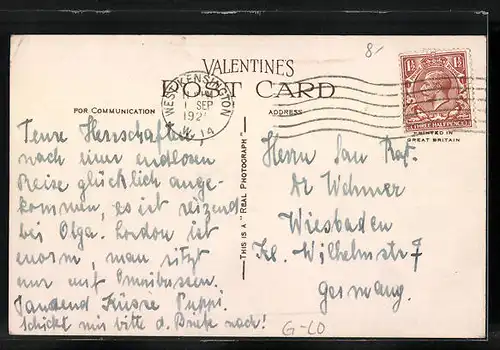 8/-
VALENTINES
POST CARD
FOR COMMUNICATION
ADDRESS
WEST KENSINGTON
1 SEP
192
W. 14
1½
1½
THREE HALFPENCE
PRINTED IN
GREAT BRITAIN
THIS IS A "REAL PHOTOGRAPH"
Teure Herrschaften,
nach einer endlosen
Reise glücklich ange-
kommen, es ist reizend
bei Olga. London ist
enorm, man sitzt
nur auf Omnibussen.
Tausend Küsse Puppi.
Schickt mir bitte d. Briefe nach!
Herrn San Rat.
Dr Wehmer
Wiesbaden
Kl. Wilhelmstr 7
Germany.
G-LO